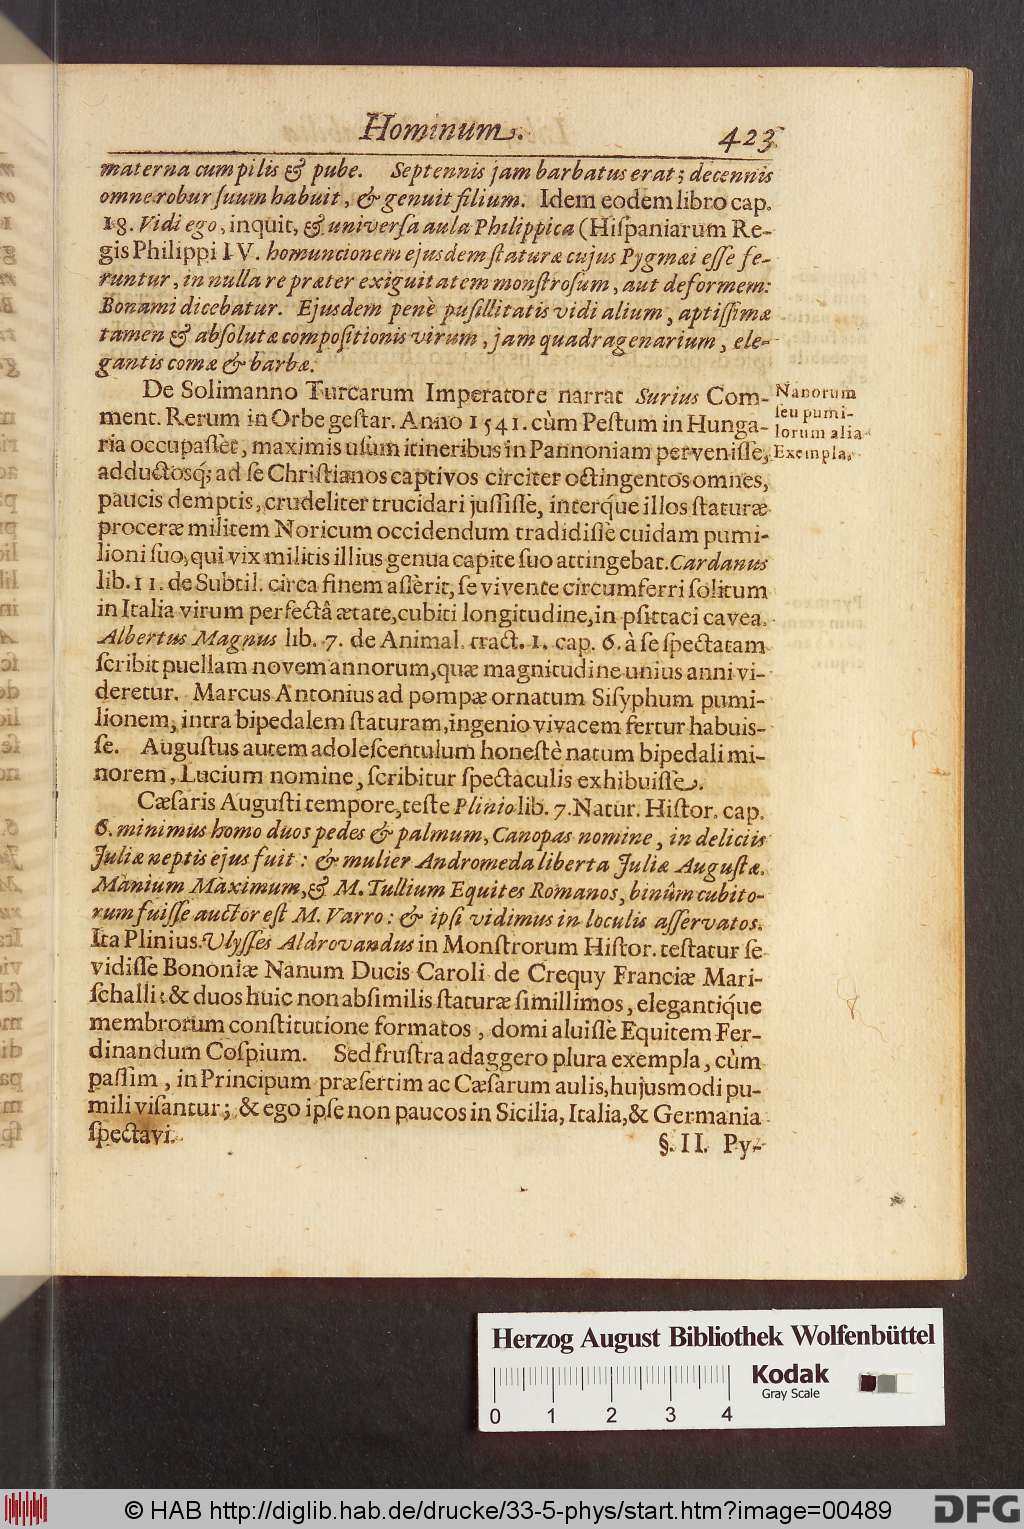 Hominum. 423
materna cum pilis & pube. Septennis jam barbatus erat; decennis
omne robur ſuum habuit, & genuit filium. Idem eodem libro cap.
18. Vidi ego, inquit, & univerſa aula Philippica (Hiſpaniarum Re-
gis Philippi IV. homuncionem ejusdem ſtaturæ cujus Pygmæi eſſe fe-
runtur, in nulla re præter exiguitatem monſtroſum, aut deformem:
Bonami dicebatur. Ejusdem penè puſillitatis vidi alium, aptiſſimæ
tamen & abſolutæ compoſitionis virum, jam quadragenarium, ele-
gantis comæ & barbæ.
De Solimanno Turcarum Imperatore narrat Surius Com-
ment. Rerum in Orbe geſtar. Anno 1541. cùm Peſtum in Hunga-
ria occupaſſet, maximis uſum itineribus in Pannoniam perveniſſe,
adductosq́; ad ſe Chriſtianos captivos circiter octingentos omnes,
paucis demptis, crudeliter trucidari juſſiſſe, interq́ue illos ſtaturæ
proceræ militem Noricum occidendum tradidiſſe cuidam pumi-
lioni ſuo, qui vix militis illius genua capite ſuo attingebat. Cardanus
lib. 11. de Subtil. circa finem aſſerit, ſe vivente circumferri ſolitum
in Italia virum perfectâ ætate, cubiti longitudine, in pſittaci cavea.
Albertus Magnus lib. 7. de Animal. tract. 1. cap. 6. à ſe ſpectatam
ſcribit puellam novem annorum, quæ magnitudine unius anni vi-
deretur. Marcus Antonius ad pompæ ornatum Siſyphum pumi-
lionem, intra bipedalem ſtaturam, ingenio vivacem fertur habuiſ-
ſe. Auguſtus autem adoleſcentulum honeſtè natum bipedali mi-
norem, Lucium nomine, ſcribitur ſpectaculis exhibuiſſe.
Nanorum
ſeu pumi-
lorum alia
Exempla.
Cæſaris Auguſti tempore, teſte Plinio lib. 7. Natur. Hiſtor. cap.
6. minimus homo duos pedes & palmum, Canopas nomine, in deliciis
Juliæ neptis ejus fuit: & mulier Andromeda liberta Juliæ Auguſtæ.
Manium Maximum, & M. Tullium Equites Romanos, binûm cubito-
rum fuiſſe auctor eſt M. Varro: & ipſi vidimus in loculis aſſervatos.
Ita Plinius. Ulyſſes Aldrovandus in Monſtrorum Hiſtor. teſtatur ſe
vidiſſe Bononiæ Nanum Ducis Caroli de Crequy Franciæ Mari-
ſchalli: & duos huic non abſimilis ſtaturæ ſimillimos, elegantiq́ue
membrorum conſtitutione formatos, domi aluiſſe Equitem Fer-
dinandum Coſpium. Sed fruſtra adaggero plura exempla, cùm
paſſim, in Principum præſertim ac Cæſarum aulis, hujusmodi pu-
mili viſantur; & ego ipſe non paucos in Sicilia, Italia, & Germania
ſpectavi.
§. II. Py-
Herzog August Bibliothek Wolfenbüttel
Kodak
Gray Scale
0 1 2 3 4
© HAB http://diglib.hab.de/drucke/33-5-phys/start.htm?image=00489
DFG